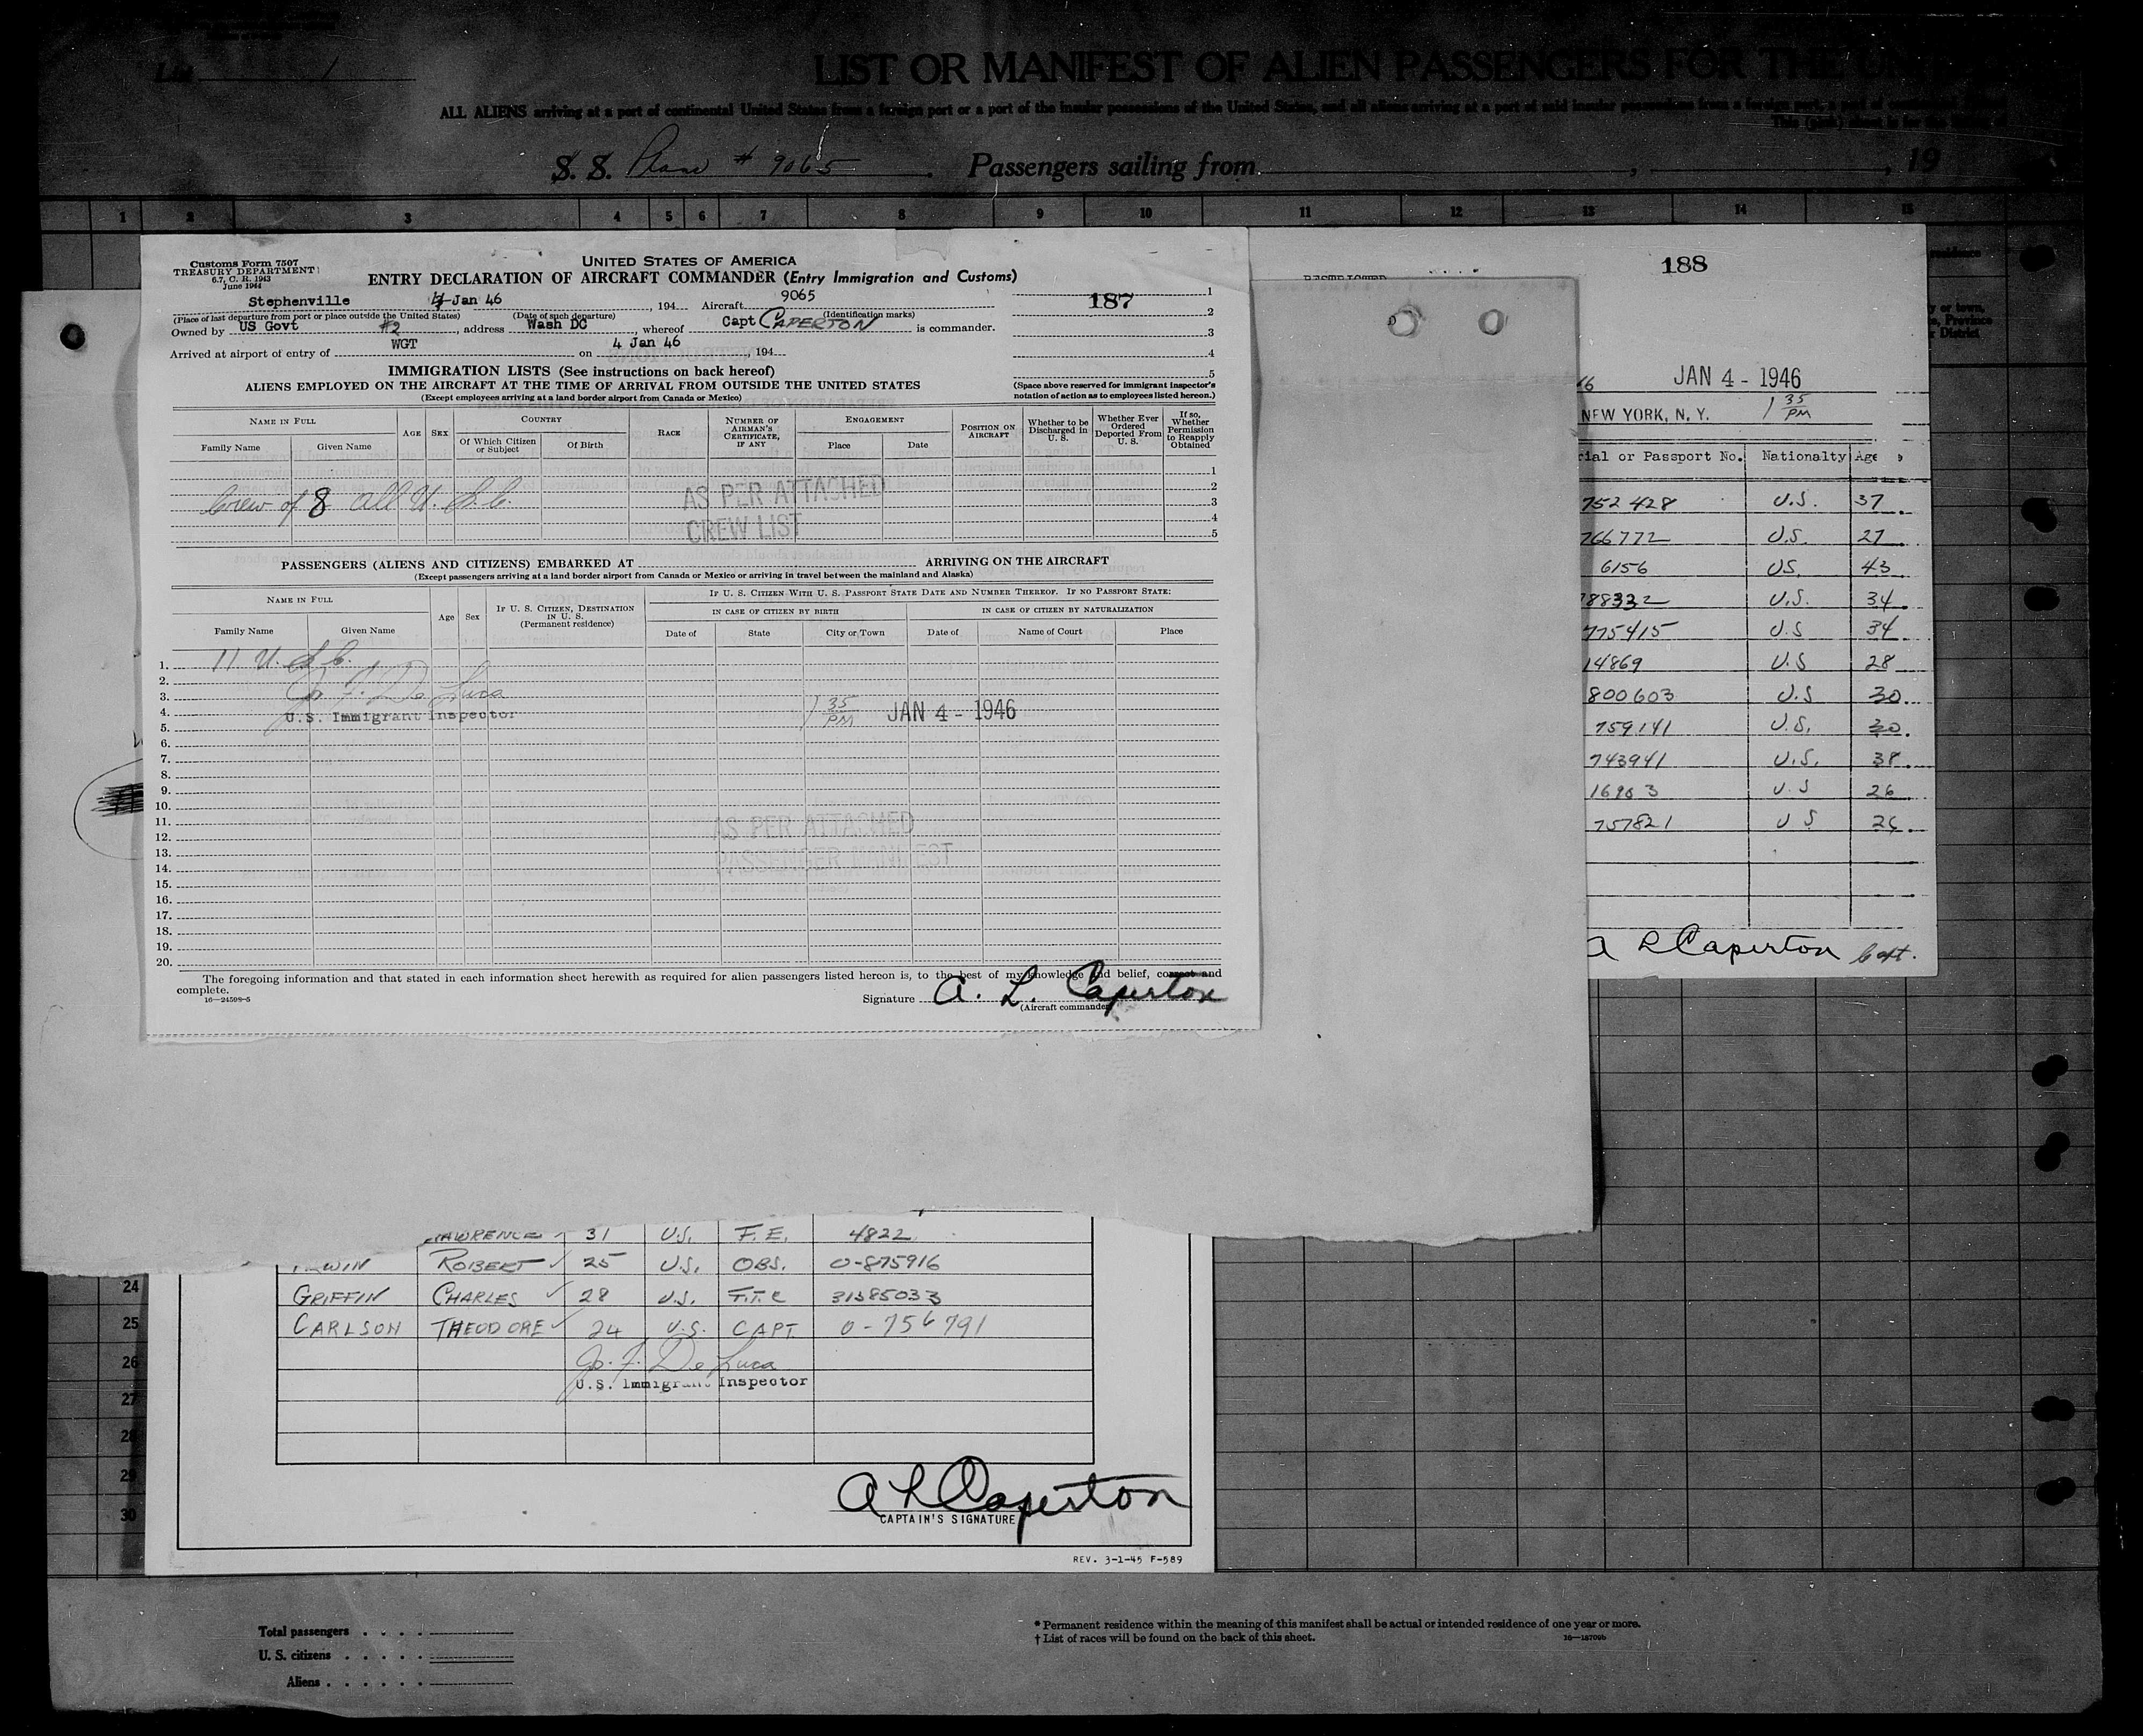 List 1
LIST OR MANIFEST OF ALIEN PASSENGERS FOR THE
ALL ALIENS arriving at a port of continental United States from a foreign port or a port of the insular possessions of the United States, and all aliens arriving at a port of said insular possessions from a foreign port, a port of continental
This (pink) sheet is for the
S. S. Plane # 9065 . Passengers sailing from , , 19
1 2 3 4 5 6 7 8 9 10 11 12 13 14 15
Customs Form 7507
TREASURY DEPARTMENT
6.7, C. R. 1943
June 1944
UNITED STATES OF AMERICA
ENTRY DECLARATION OF AIRCRAFT COMMANDER (Entry Immigration and Customs)
Stephenville 4 Jan 46 , 194 Aircraft 9065
(Place of last departure from port or place outside the United States) (Date of such departure) (Identification marks)
Owned by US Govt #2 , address Wash DC , whereof Capt CAPERTON is commander.
Arrived at airport of entry of WGT on 4 Jan 46 , 194
1
187
2
3
4
5
IMMIGRATION LISTS (See instructions on back hereof)
ALIENS EMPLOYED ON THE AIRCRAFT AT THE TIME OF ARRIVAL FROM OUTSIDE THE UNITED STATES
(Except employees arriving at a land border airport from Canada or Mexico)
(Space above reserved for immigrant inspector's
notation of action as to employees listed hereon.)
NAME IN FULL AGE SEX COUNTRY RACE NUMBER OF AIRMAN'S CERTIFICATE, IF ANY ENGAGEMENT POSITION ON AIRCRAFT Whether to be Discharged in U. S. Whether Ever Ordered Deported From U. S. If so, Whether Permission to Reapply Obtained
Family Name Given Name Of Which Citizen or Subject Of Birth Place Date
1
2
3
4
5
Crew of 8 all U. S. C.
AS PER ATTACHED
CREW LIST
PASSENGERS (ALIENS AND CITIZENS) EMBARKED AT ARRIVING ON THE AIRCRAFT
(Except passengers arriving at a land border airport from Canada or Mexico or arriving in travel between the mainland and Alaska)
NAME IN FULL Age Sex IF U. S. CITIZEN, DESTINATION IN U. S. (Permanent residence) IF U. S. CITIZEN WITH U. S. PASSPORT STATE DATE AND NUMBER THEREOF. IF NO PASSPORT STATE:
IN CASE OF CITIZEN BY BIRTH IN CASE OF CITIZEN BY NATURALIZATION
Family Name Given Name Date of State City or Town Date of Name of Court Place
1. 11 U. S. C.
2.
3. Jo. F. De Luca
4. U.S. Immigrant Inspector 1 35 PM JAN 4 - 1946
5.
6.
7.
8.
9.
10.
11. AS PER ATTACHED
12.
13. PASSENGER MANIFEST
14.
15.
16.
17.
18.
19.
20.
The foregoing information and that stated in each information sheet herewith as required for alien passengers listed hereon is, to the best of my knowledge and belief, correct and
complete.
16—24598-5
Signature A. L. Caperton
(Aircraft commander)
188
JAN 4 - 1946
NEW YORK, N. Y. 1 35 PM
or Passport No. Nationalty Age
752428 U.S. 37
766772 U.S. 27
6156 US. 43
788332 U.S. 34
775415 U.S 34
14869 U.S 28
800603 U.S 30
759141 U.S. 30
743941 U.S. 38
16983 U.S 26
757821 U S
A L Caperton Capt.
31 U.S. F.E. 4822
ROBERT 25 U.S. OBS. 0-875916
GRIFFIN CHARLES 28 U.S. 31385033
CARLSON THEODORE 24 U.S. CAPT 0-756791
Jo. F. De Luca
U.S. Immigrant Inspector
24
25
26
27
28
29
30
A L Caperton
CAPTAIN'S SIGNATURE
REV. 3-1-45 F-589
Total passengers
U. S. citizens
Aliens
* Permanent residence within the meaning of this manifest shall be actual or intended residence of one year or more.
† List of races will be found on the back of this sheet.